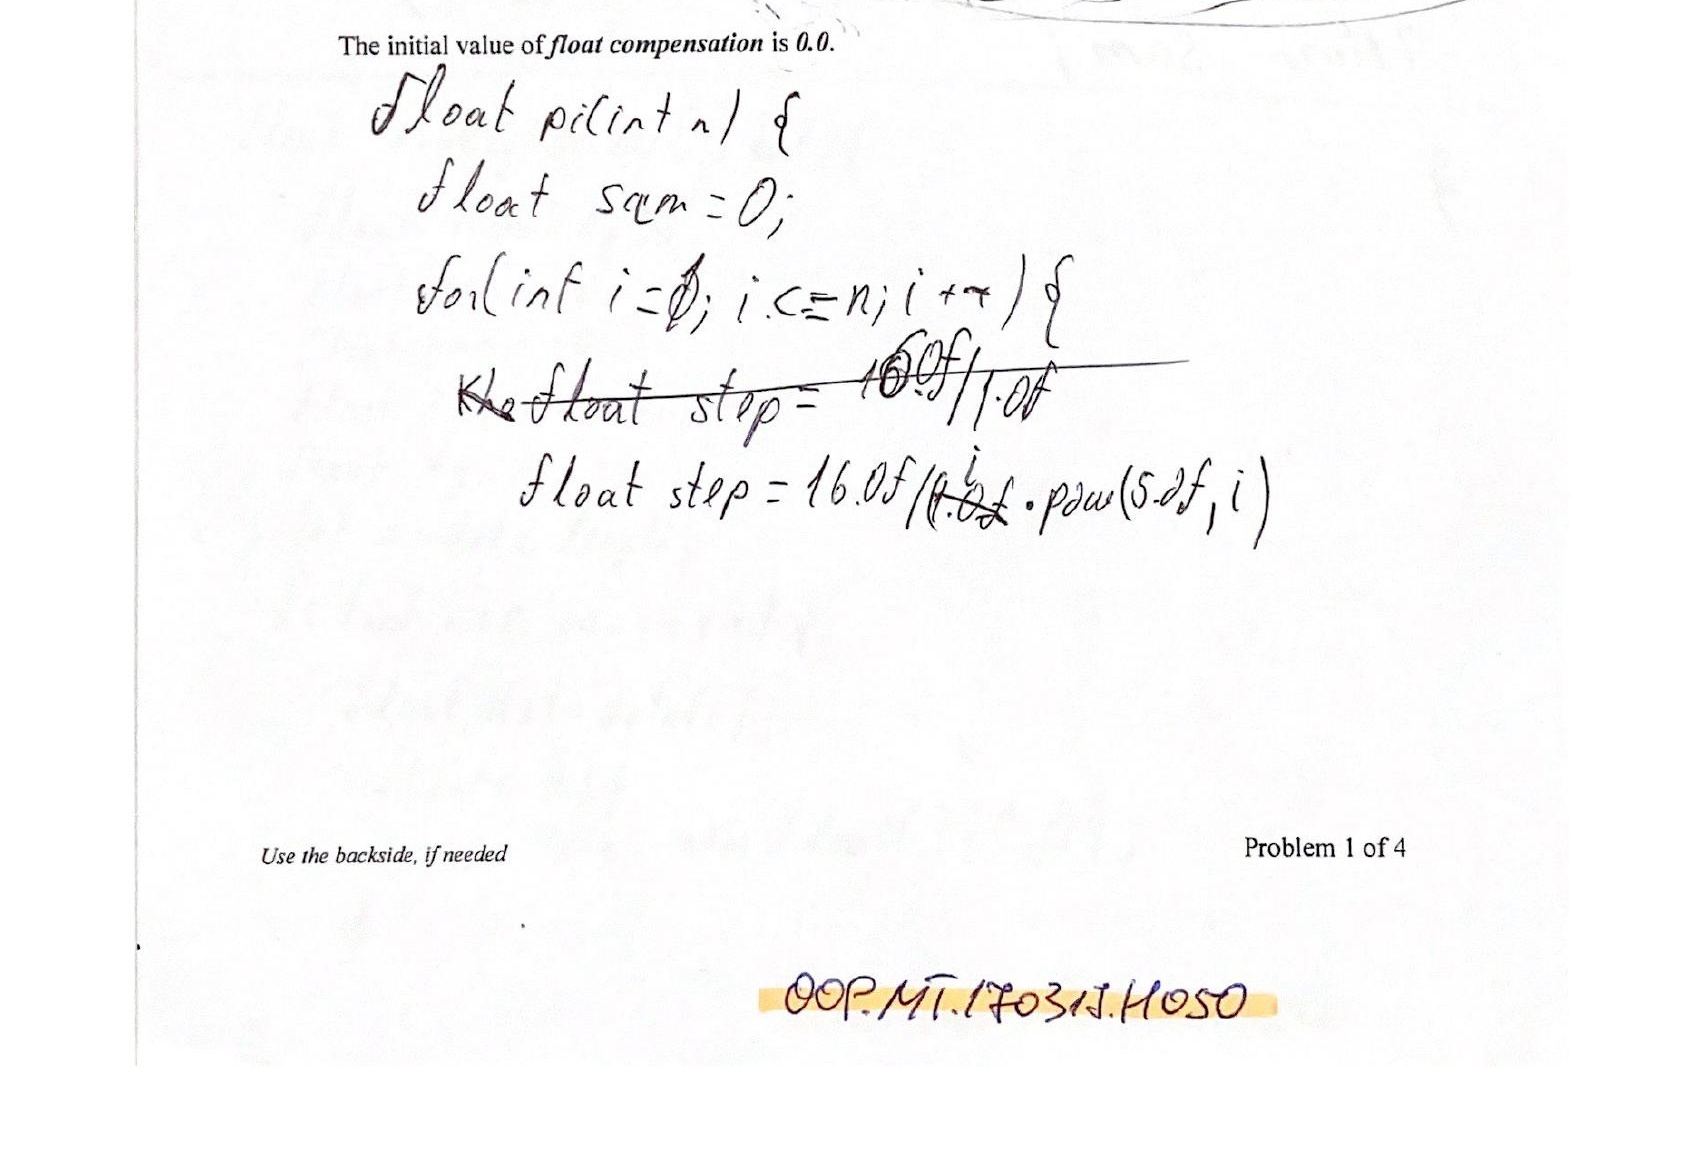 The initial value of float compensation is 0.0.
float pi(int n) {
float sum = 0;
for(int i = 0; i <= n; i++) {
float step = 16.0f/1.0f
float step = 16.0f/i · pow(5.0f, i)
Use the backside, if needed
Problem 1 of 4
OOP.MT.170315.H050